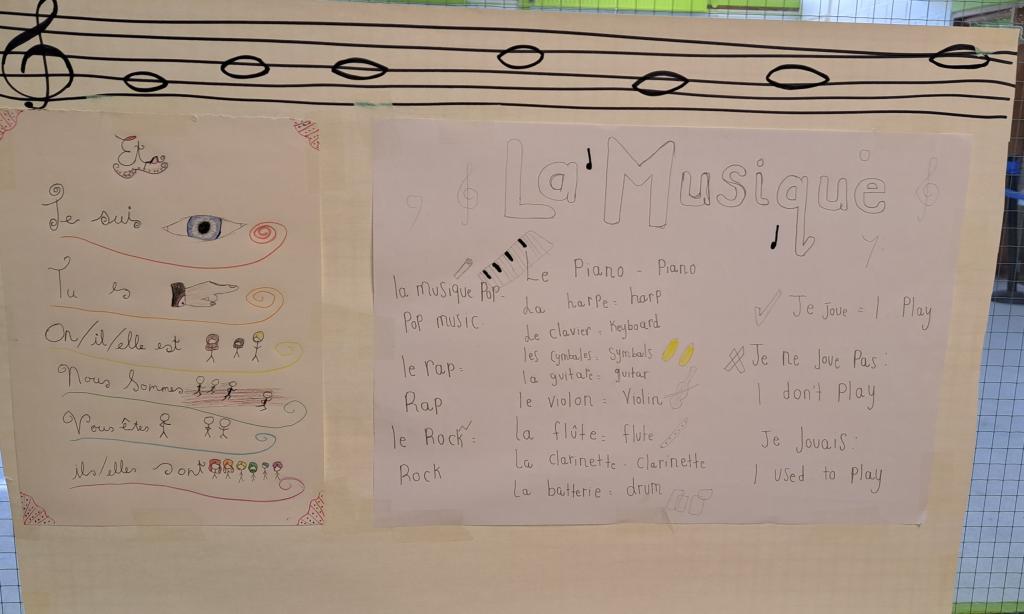 Et
Je suis
Tu es
On/il/elle est
Nous sommes
Vous êtes
ils/elles sont
La Musique
la musique Pop-
Pop music.
le rap=
Rap
le Rock=
Rock
Le Piano - Piano
La harpe= harp
Le clavier= Keyboard
les cymbales= Symbals
la guitare= guitar
le violon= Violin
La flûte= flute
La clarinette- Clarinette
La batterie= drum
Je joue = I Play
Je ne joue Pas:
I don't Play
Je Jouais:
I used to Play